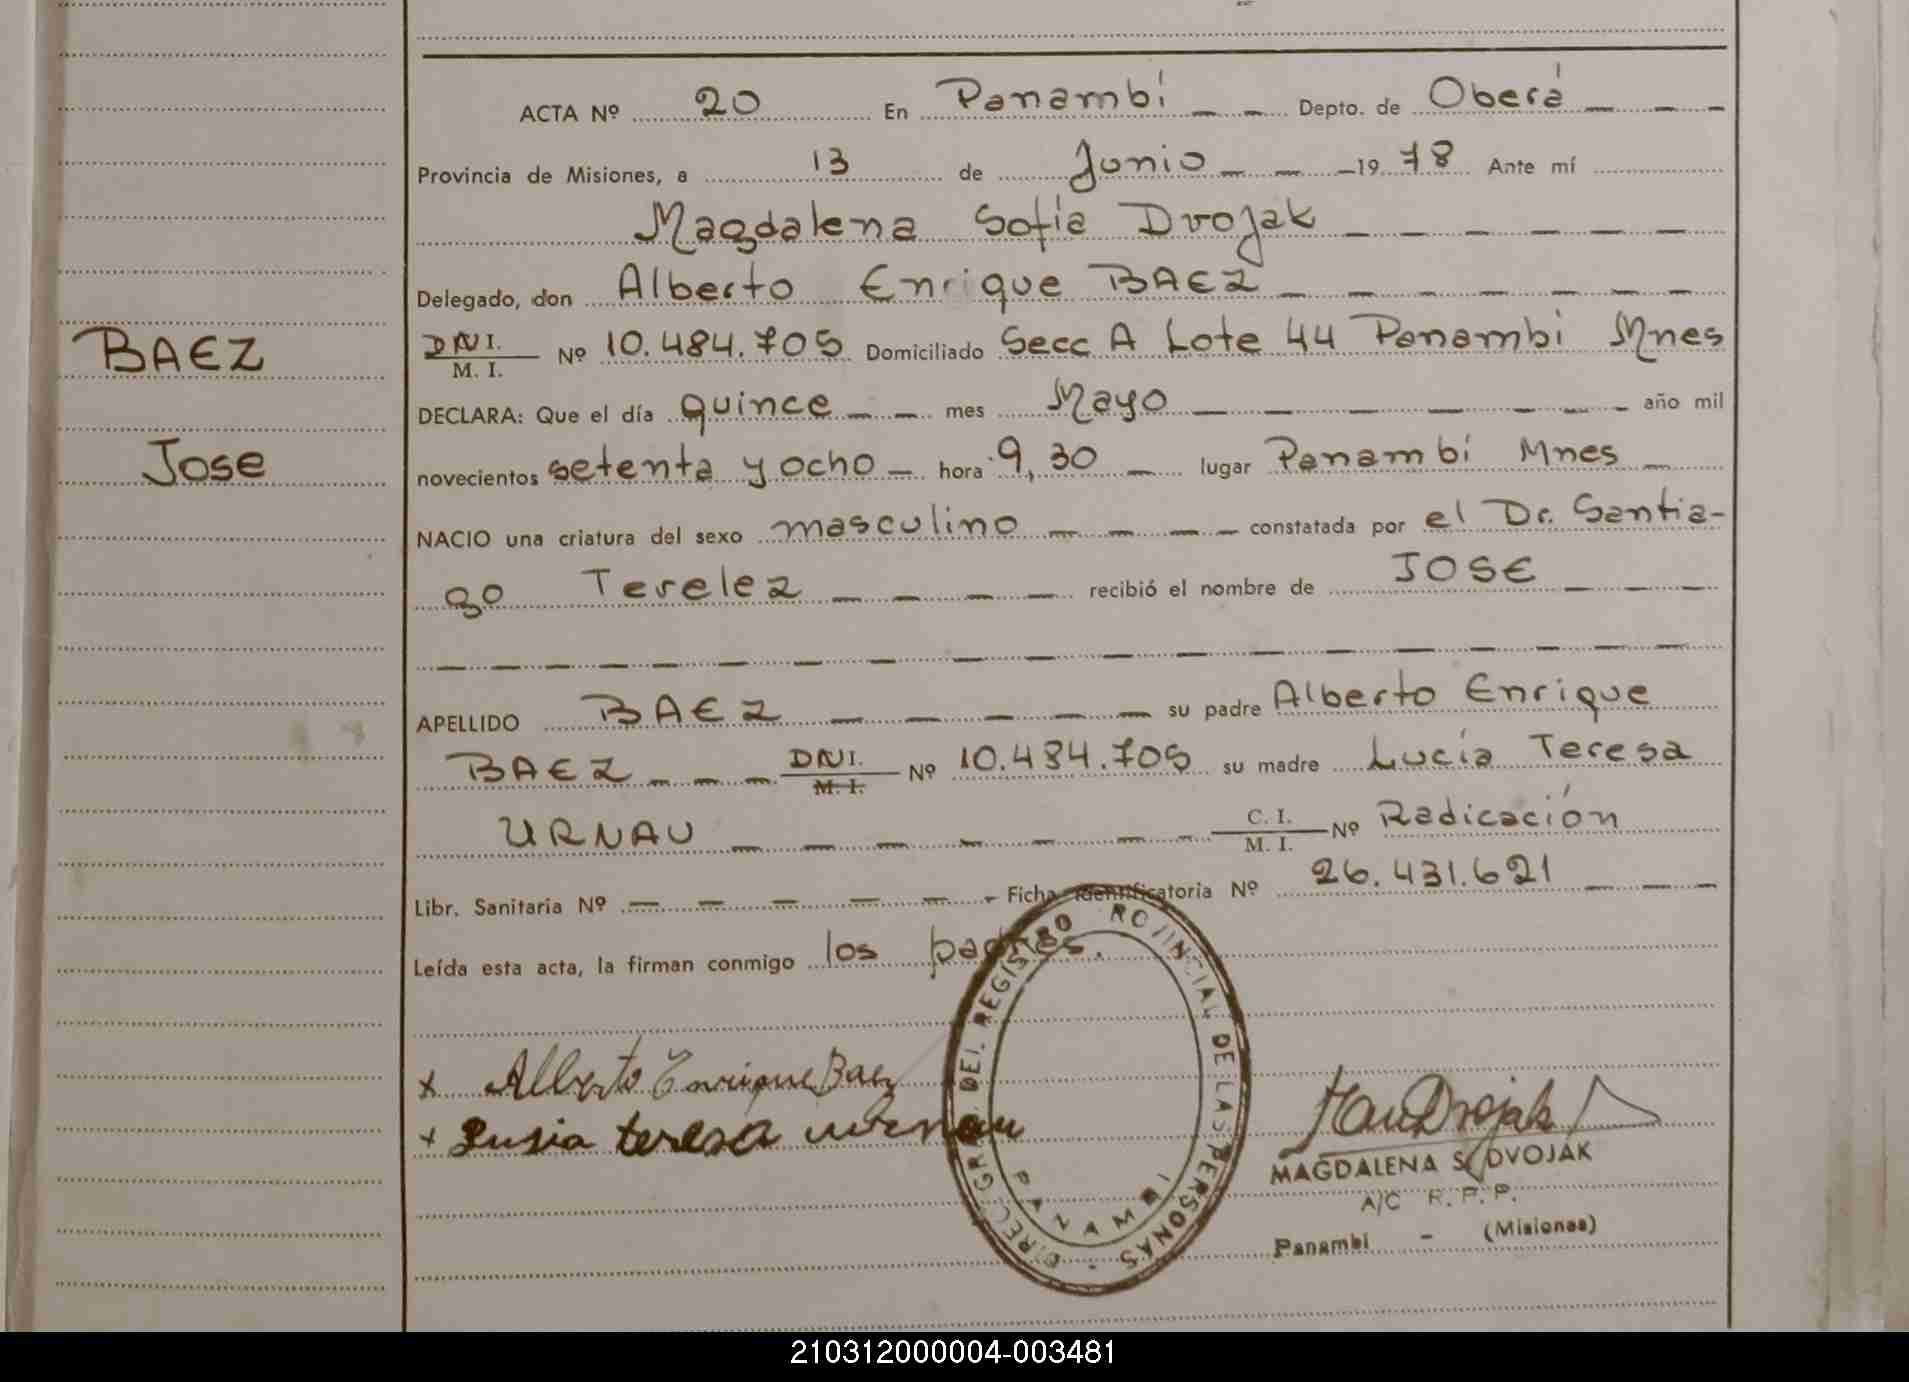 ACTA Nº 20 En Panambí Depto. de Oberá
Provincia de Misiones, a 13 de Junio 1978 Ante mí
Magdalena Sofía Dvojak
Delegado, don Alberto Enrique BAEZ
BAEZ
DNI.
M. I. Nº 10.484.705 Domiciliado Secc A Lote 44 Panambí Mnes
DECLARA: Que el día quince mes Mayo año mil
Jose
novecientos setenta y ocho hora 9,30 lugar Panambí Mnes
NACIO una criatura del sexo masculino constatada por el Dr. Santia-
go Terelez recibió el nombre de JOSE
APELLIDO BAEZ su padre Alberto Enrique
BAEZ DNI. M. I. Nº 10.484.705 su madre Lucía Teresa
URNAU C. I. M. I. Nº Radicación
Libr. Sanitaria Nº Ficha Identificatoria Nº 26.431.621
Leída esta acta, la firman conmigo los padres.
x Alberto Enrique Baez
+ Lusia teresa urnau
DIREC. GRAL. DEL REGISTRO PROVINCIAL DE LAS PERSONAS
PANAMBI
Dvojak
MAGDALENA S. DVOJAK
A/C R. P. P.
Panambi - (Misiones)
210312000004-003481